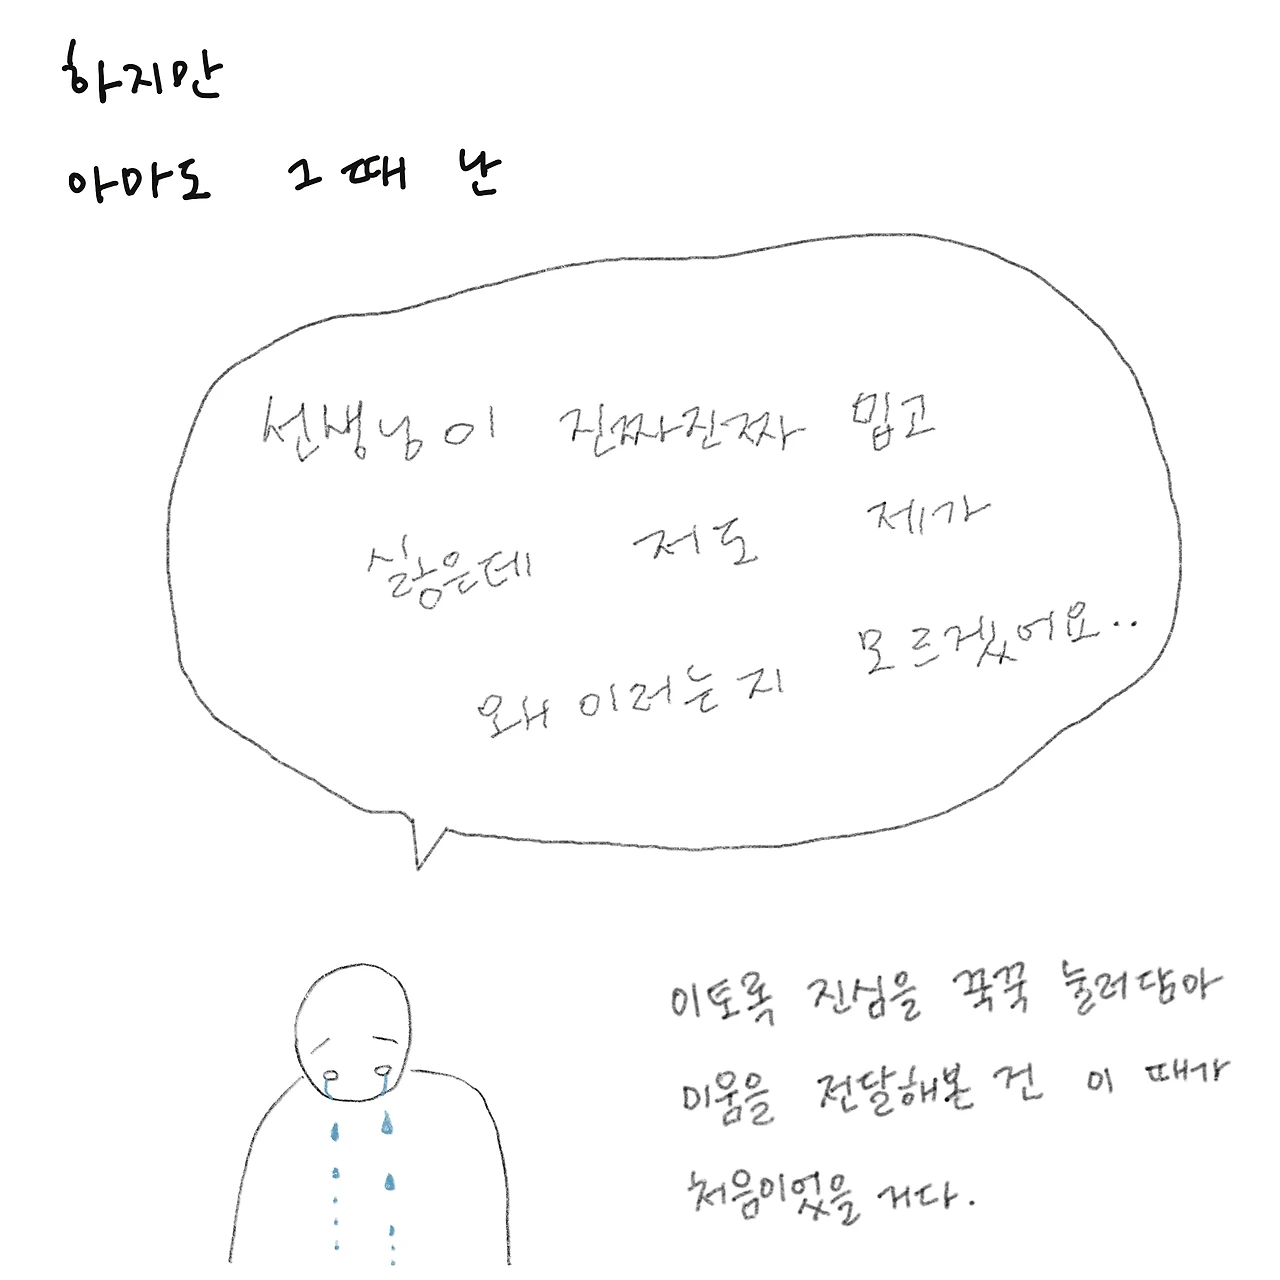 하지만
아마도 그때 난
선생님이 진짜진짜 밉고
싫은데 저도 제가
왜 이러는지 모르겠어요..
이토록 진심을 꾹꾹 눌러담아
미움을 전달해본 건 이 때가
처음이었을 거다.